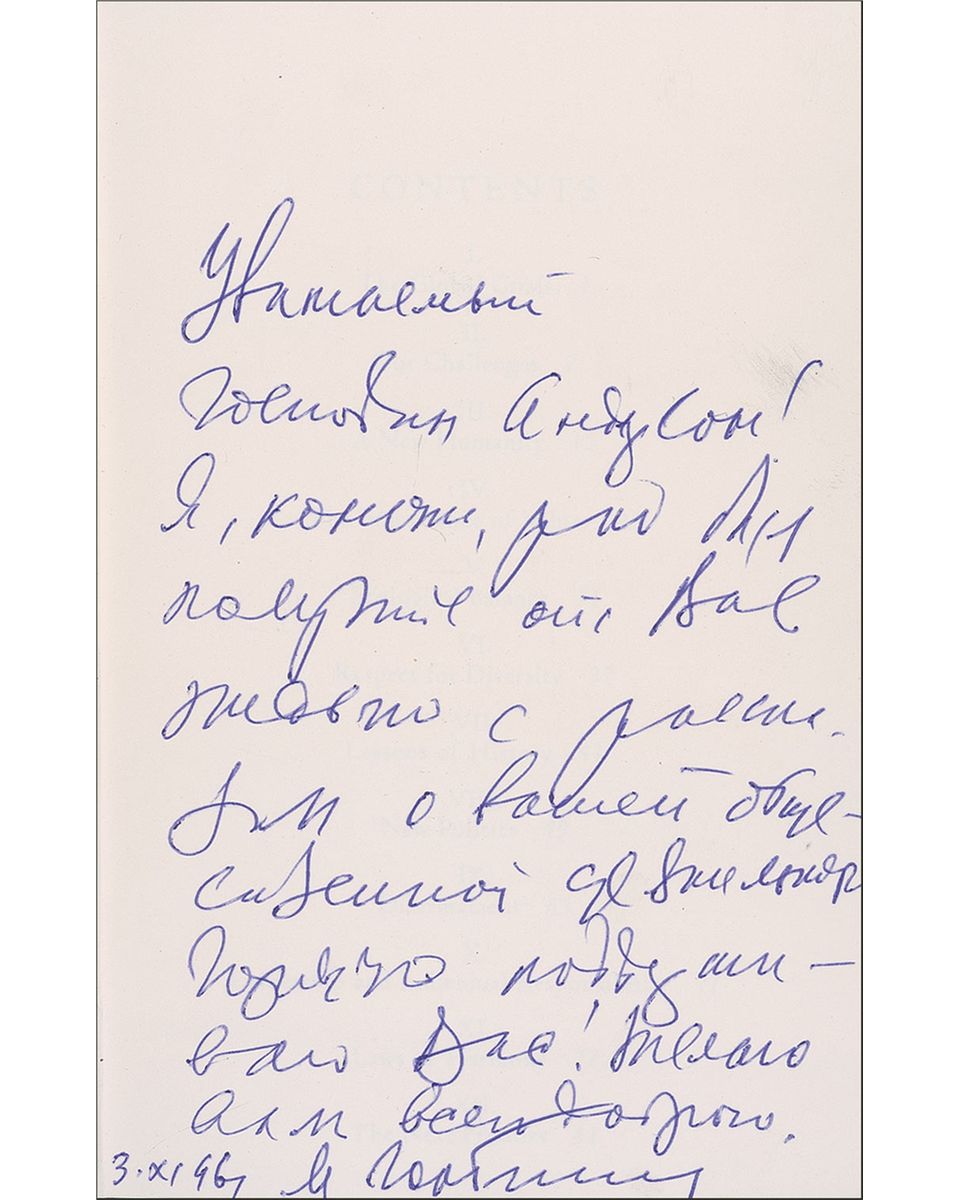 Уважаемый
Господин Андерсон!
Я, конечно, рад был
получить от Вас
письмо с расска-
зом о вашей обще-
ственной деятельности
Горячо поддержи-
ваю Вас! Желаю
Вам всего доброго.
3.XI 96г М Горбачев